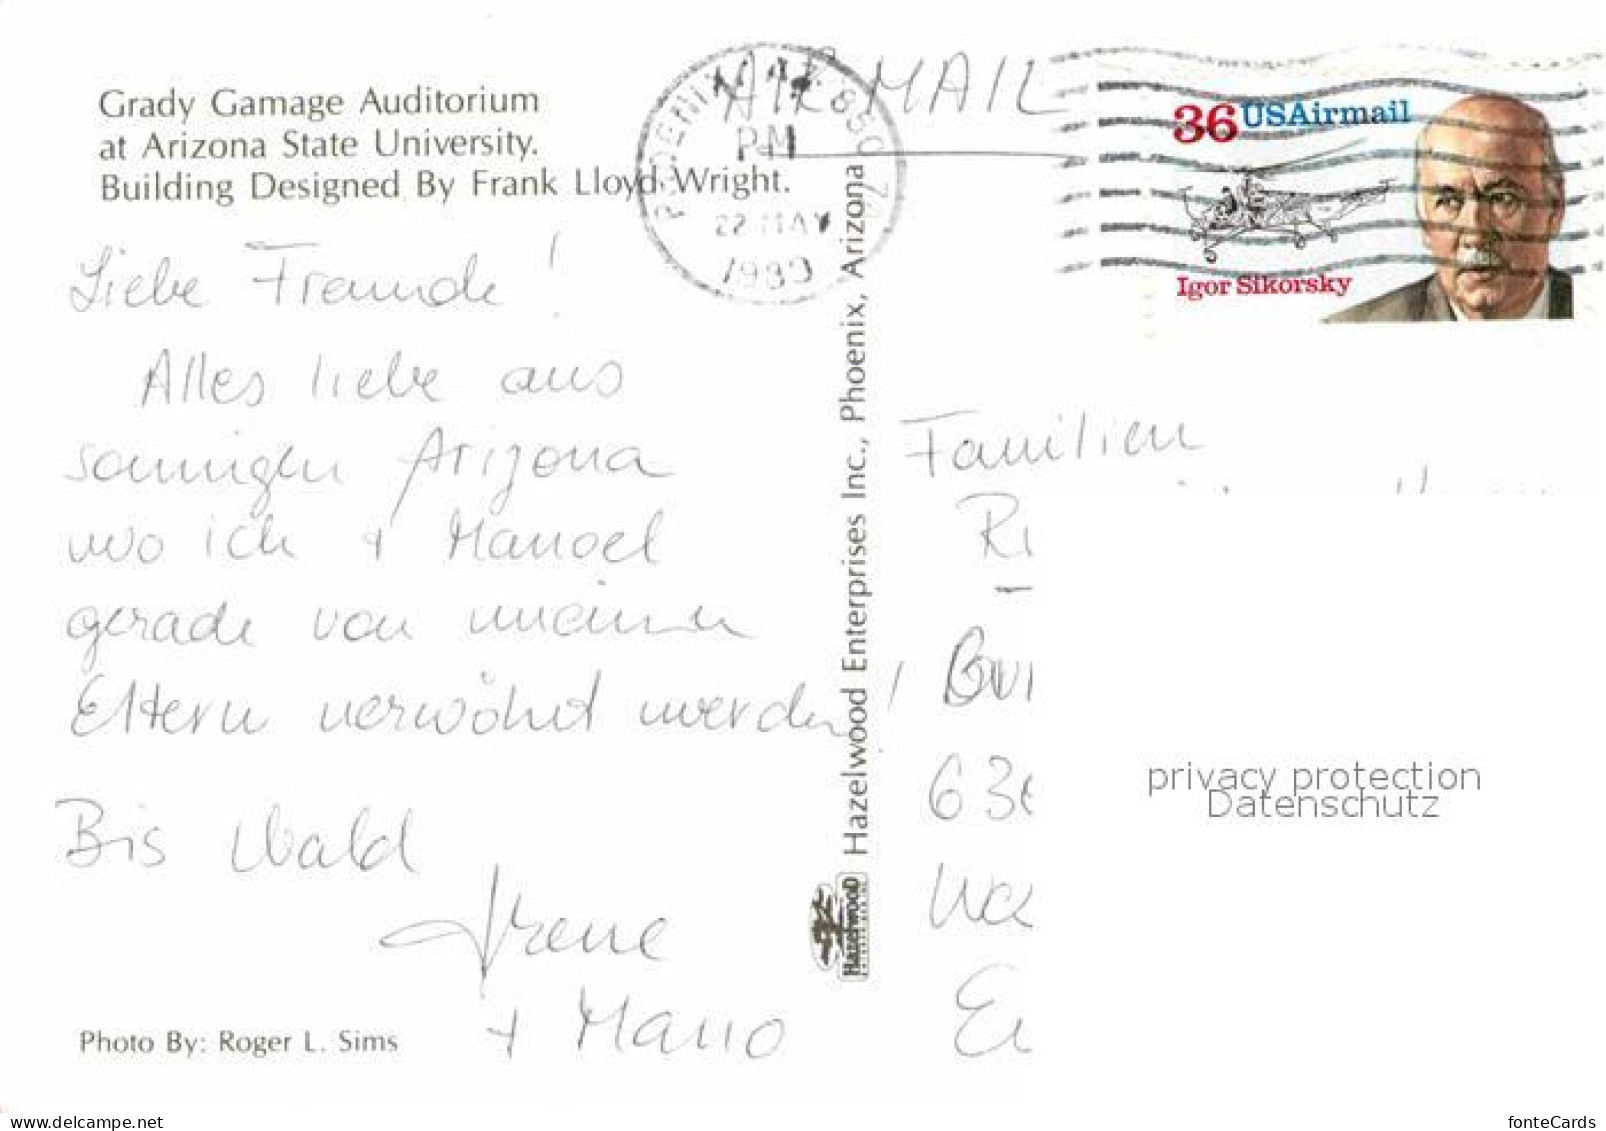 Grady Gamage Auditorium
at Arizona State University.
Building Designed By Frank Lloyd Wright.
AIR MAIL
PHOENIX, AZ 850
PM
22 MAY
1989
36 USAirmail
Igor Sikorsky
Liebe Freunde!
Alles liebe aus
sonnigen Arizona
wo ich + Manoel
gerade von meinen
Eltern verwöhnt werden!
Bis bald
Irene
+ Mano
Photo By: Roger L. Sims
Hazelwood Enterprises Inc., Phoenix, Arizona
Hazelwood
Familien
privacy protection
Datenschutz
www.delcampe.net
fonteCards